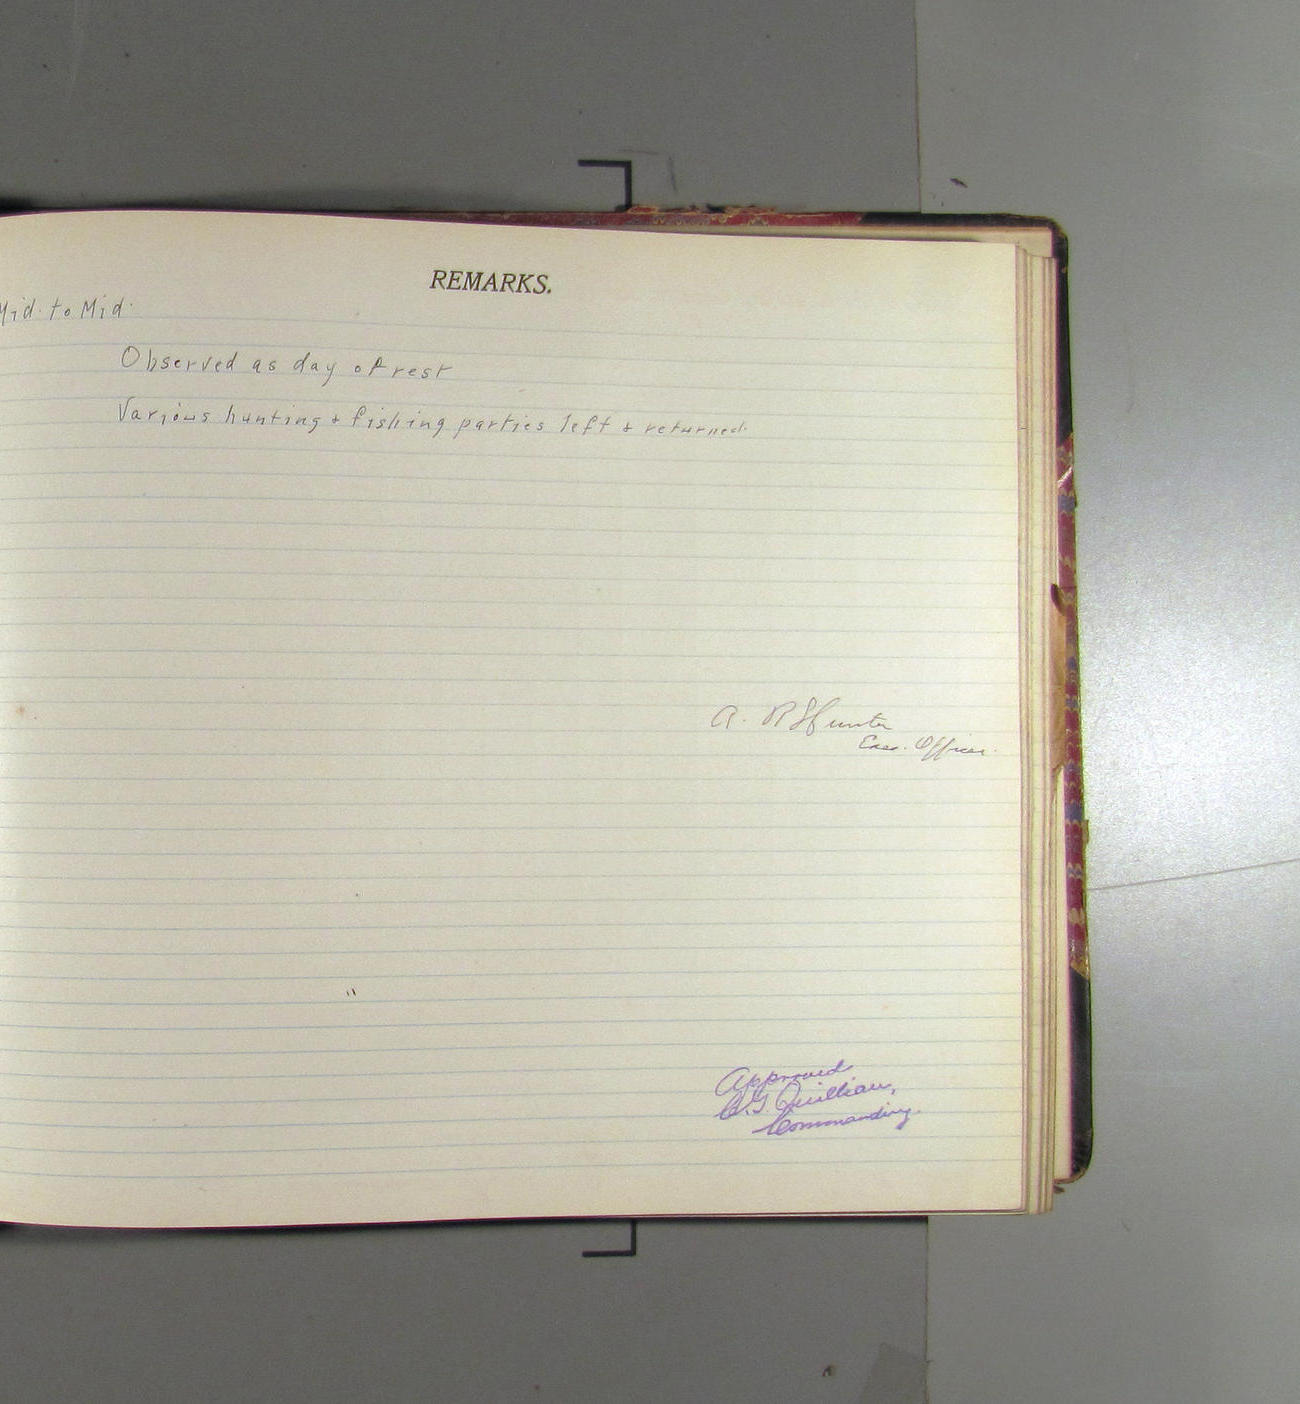 REMARKS.
Mid. to Mid.
Observed as day of rest
Various hunting & fishing parties left & returned.
A. P. Hunter
Exec. Officer.
Approved
C.G. Quillian,
Commanding.